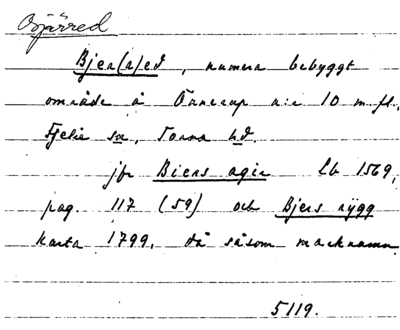 Bjärred
Bjer(r)ed, numera bebyggt
område å Önnerup n:r 10 m fl,
Fjelie sn, Torna hd.
jfr Biers agir Lb 1569,
pag. 117 (59) och Bjers rygg
karta 1799, då såsom marknamn
5119.